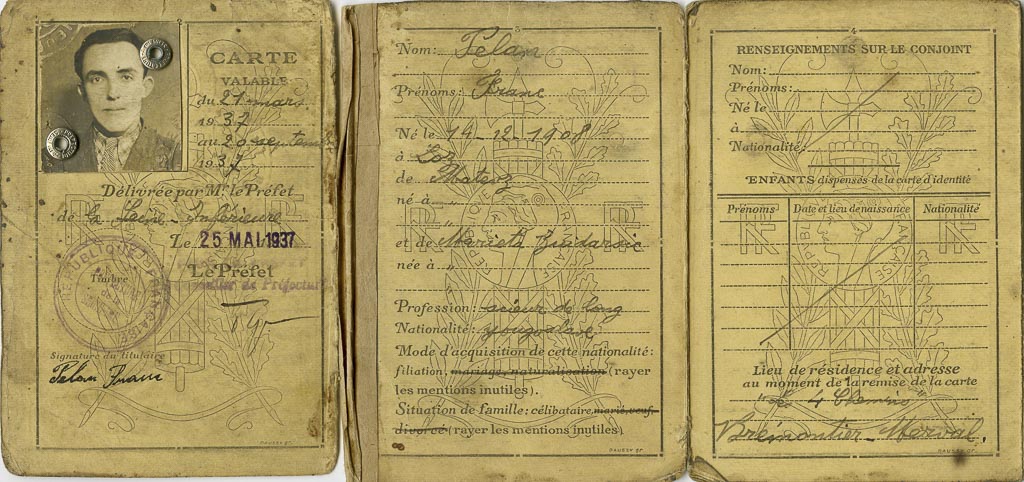 CARTE
VALABLE
du 21 mars
1937
au 20 septembre
1937
Délivrée par Mr. le Préfet
de la Seine-Inférieure
Le 25 MAI 1937
Le Préfet
Timbre
RÉPUBLIQUE FRANÇAISE
Signature du titulaire
Pelan Franc
DAUSSY GR.
3
Nom: Pelan
Prénoms: Franc
Né le 14-12-1908
à Loz
de Mateoz
né à "
et de Marieta
née à "
Profession: scieur de long
Nationalité: yougoslave
Mode d'acquisition de cette nationalité:
filiation, mariage, naturalisation (rayer
les mentions inutiles).
Situation de famille: célibataire, marié, veuf,
divorcé (rayer les mentions inutiles)
DAUSSY GR.
4
RENSEIGNEMENTS SUR LE CONJOINT
Nom:
Prénoms:
Né le
à
Nationalité:
ENFANTS dispensés de la carte d'identité
Prénoms Date et lieu de naissance Nationalité
RÉPUBLIQUE FRANÇAISE
RF RF
Lieu de résidence et adresse
au moment de la remise de la carte
"Les 4 Chemins"
Brémontier-Merval.
DAUSSY GR.